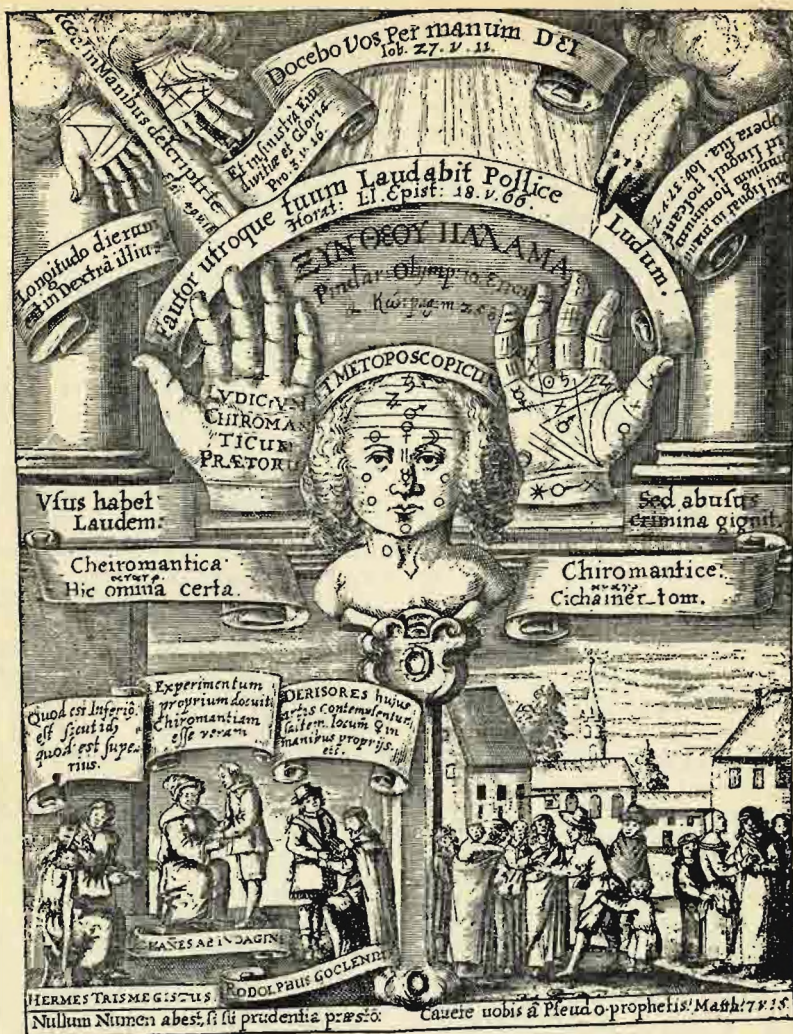 Docebo Vos Per manum DEI
Iob. 27. v. 11.
in Manibus descripsite
Et in sinistrâ Eius
divitiæ et Gloria.
Pro. 3. v. 16.
Longitudo dierum
in Dextrâ illius
signat in manu
omnium hominum
noscant
singuli
opera sua. Iob: 37. v. 7.
Fautor utroque tuum Laudabit Pollice Ludum.
Horat: LI. Epist: 18. v. 66.
ΞΥΝ ΘΕΟΥ ΠΑΛΑΜΑ
Pindar: Olymp: 10.
IVDICIVM
CHIROMAN
TICUM
PRÆTORII
ET METOPOSCOPICUM
Vsus habet
Laudem:
Sed abusus
crimina gignit.
Cheiromantica:
Hic omina certa.
Chiromantice:
Cichainer_tom.
Quod est Inferiō.
est sicut id,
quod est supe-
rius.
Experimentum
proprium docuit
Chiromantiam
esse veram
DERISORES hujus
artis contemnentur,
saltem locum in
manibus proprijs.
etc.
HERMES TRISMEGISTUS.
IOHANNES AB INDAGINE
RODOLPHUS GOCLENIUS
Nullum Numen abest, si sit prudentia præsto:
Cavete vobis â Pseudo-prophetis! Matth: 7 v. 15.